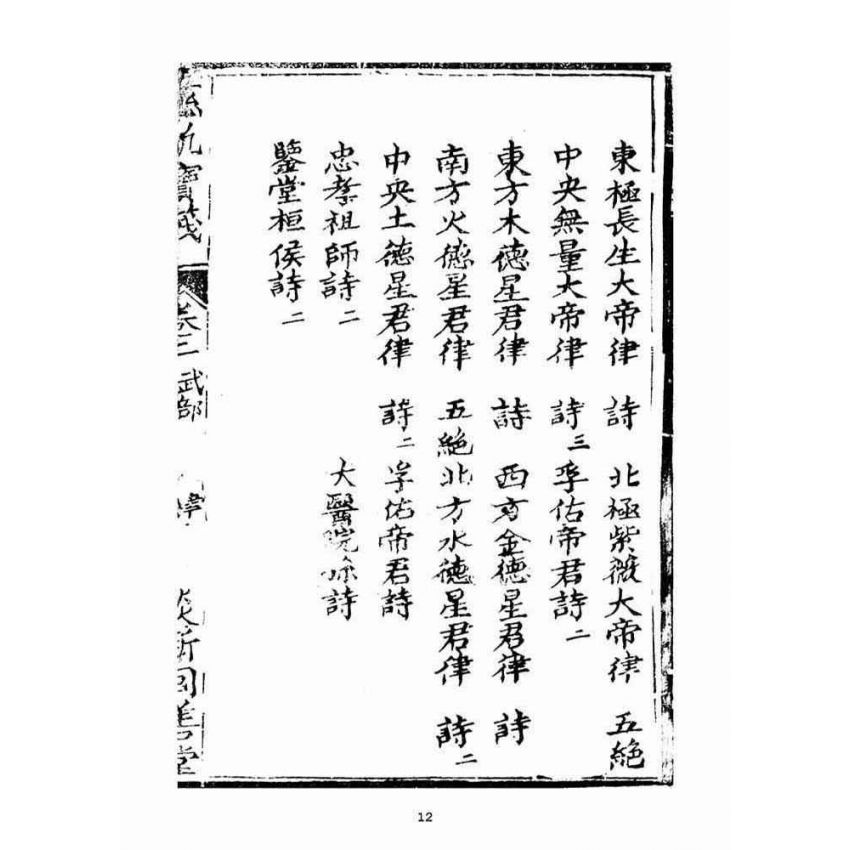 東極長生大帝律 詩 北極紫薇大帝律 五絕
中央無量大帝律 詩三 孚佑帝君詩二
東方木德星君律 詩 西方金德星君律 詩
南方火德星君律 五絕 北方水德星君律 詩二
中央土德星君律 詩二 孚佑帝君詩
忠孝祖師詩二 大醫院 詩
鑒堂桓侯詩二
寶箋 卷三 武部 新 善堂
12